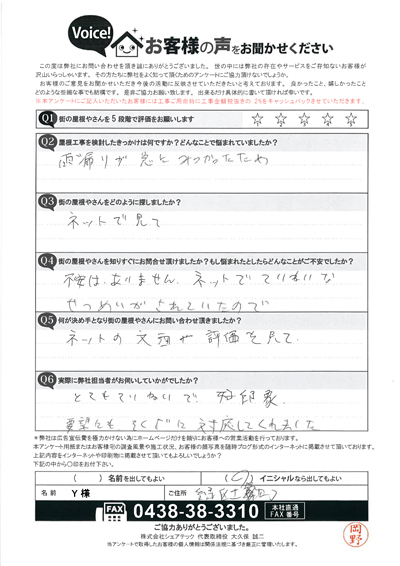 Voice!
お客様の声をお聞かせください
この度は弊社にお問い合わせを頂き誠にありがとうございました。世の中には弊社の存在やサービスをご存知ないお客様が
沢山いらっしゃいます。その方たちに弊社をよく知って頂くためのアンケートにご協力頂けないでしょうか。
お客様のご意見をお聞かせいただき今後の活動に反映させていただきたいと考えております。良かったこと、嬉しかったこと
どのような些細な事でも結構です。是非ご協力お願い致します。出来るだけ具体的に書いて頂ければ幸いです。
※本アンケートにご記入いただいたお客様には工事ご用命時に工事金額税抜きの2%をキャッシュバックさせていただきます。
Q1 街の屋根やさんを5段階で評価をお願いします ☆ ☆ ☆ ☆ ☆
Q2 屋根工事を検討したきっかけは何ですか?どんなことで悩まれていましたか?
雨漏りが窓とわかったため
Q3 街の屋根やさんをどのように探しましたか?
ネットで見て
Q4 街の屋根やさんを知りすぐにお問合せ頂けましたか?もし悩まれたとしたらどんなことがご不安でしたか?
不安は、ありません、ネットでていねいな
せつめいがされていたので
Q5 何が決め手となり街の屋根やさんにお問い合わせ頂きましたか?
ネットの文面や評価を見て、
Q6 実際に弊社担当者がお伺いしていかがでしたか?
とてもていねいで、好印象、
要望にも、すぐに対応してくれました
*弊社は広告宣伝費を極力かけない為にホームページだけを頼りにお客様への営業活動を行っております。
本アンケート用紙またはお客様宅の調査風景や施工状況、お客様の顔写真を随時ブログ形式のインターネットに掲載させて頂いております。
上記内容をインターネットや印刷物に掲載させて頂いてもよろしいでしょうか?
下記の中から○印をお付下さい。
( )名前を出してもよい (○)イニシャルなら出してもよい
名前 Y様 ご住所
FAX 0438-38-3310 本社直通 FAX番号
ご協力ありがとうございました。
株式会社シェアテック 代表取締役 大久保 誠二
当アンケートで取得したお客様の個人情報は関係法規に基づき厳正に管理いたします。
岡野